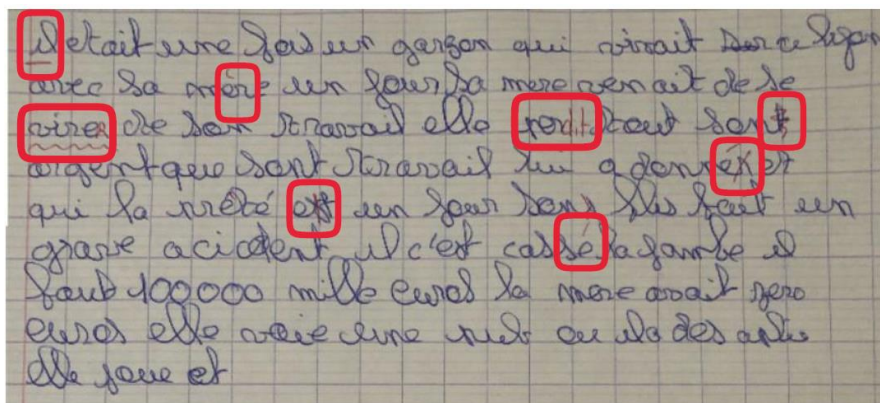 il etait une fois un garçon qui vivait
avec sa mère un jour sa mere venait de se
virer de son travail elle perdit tout sont
argent que sont travail lui a donné et
qui la un jour sons fils fait un
grave acident il c'est cassé sa jambe il
faut 100000 mille euros la mere avait zero
euros elle voie une ou il a des
elle joue et